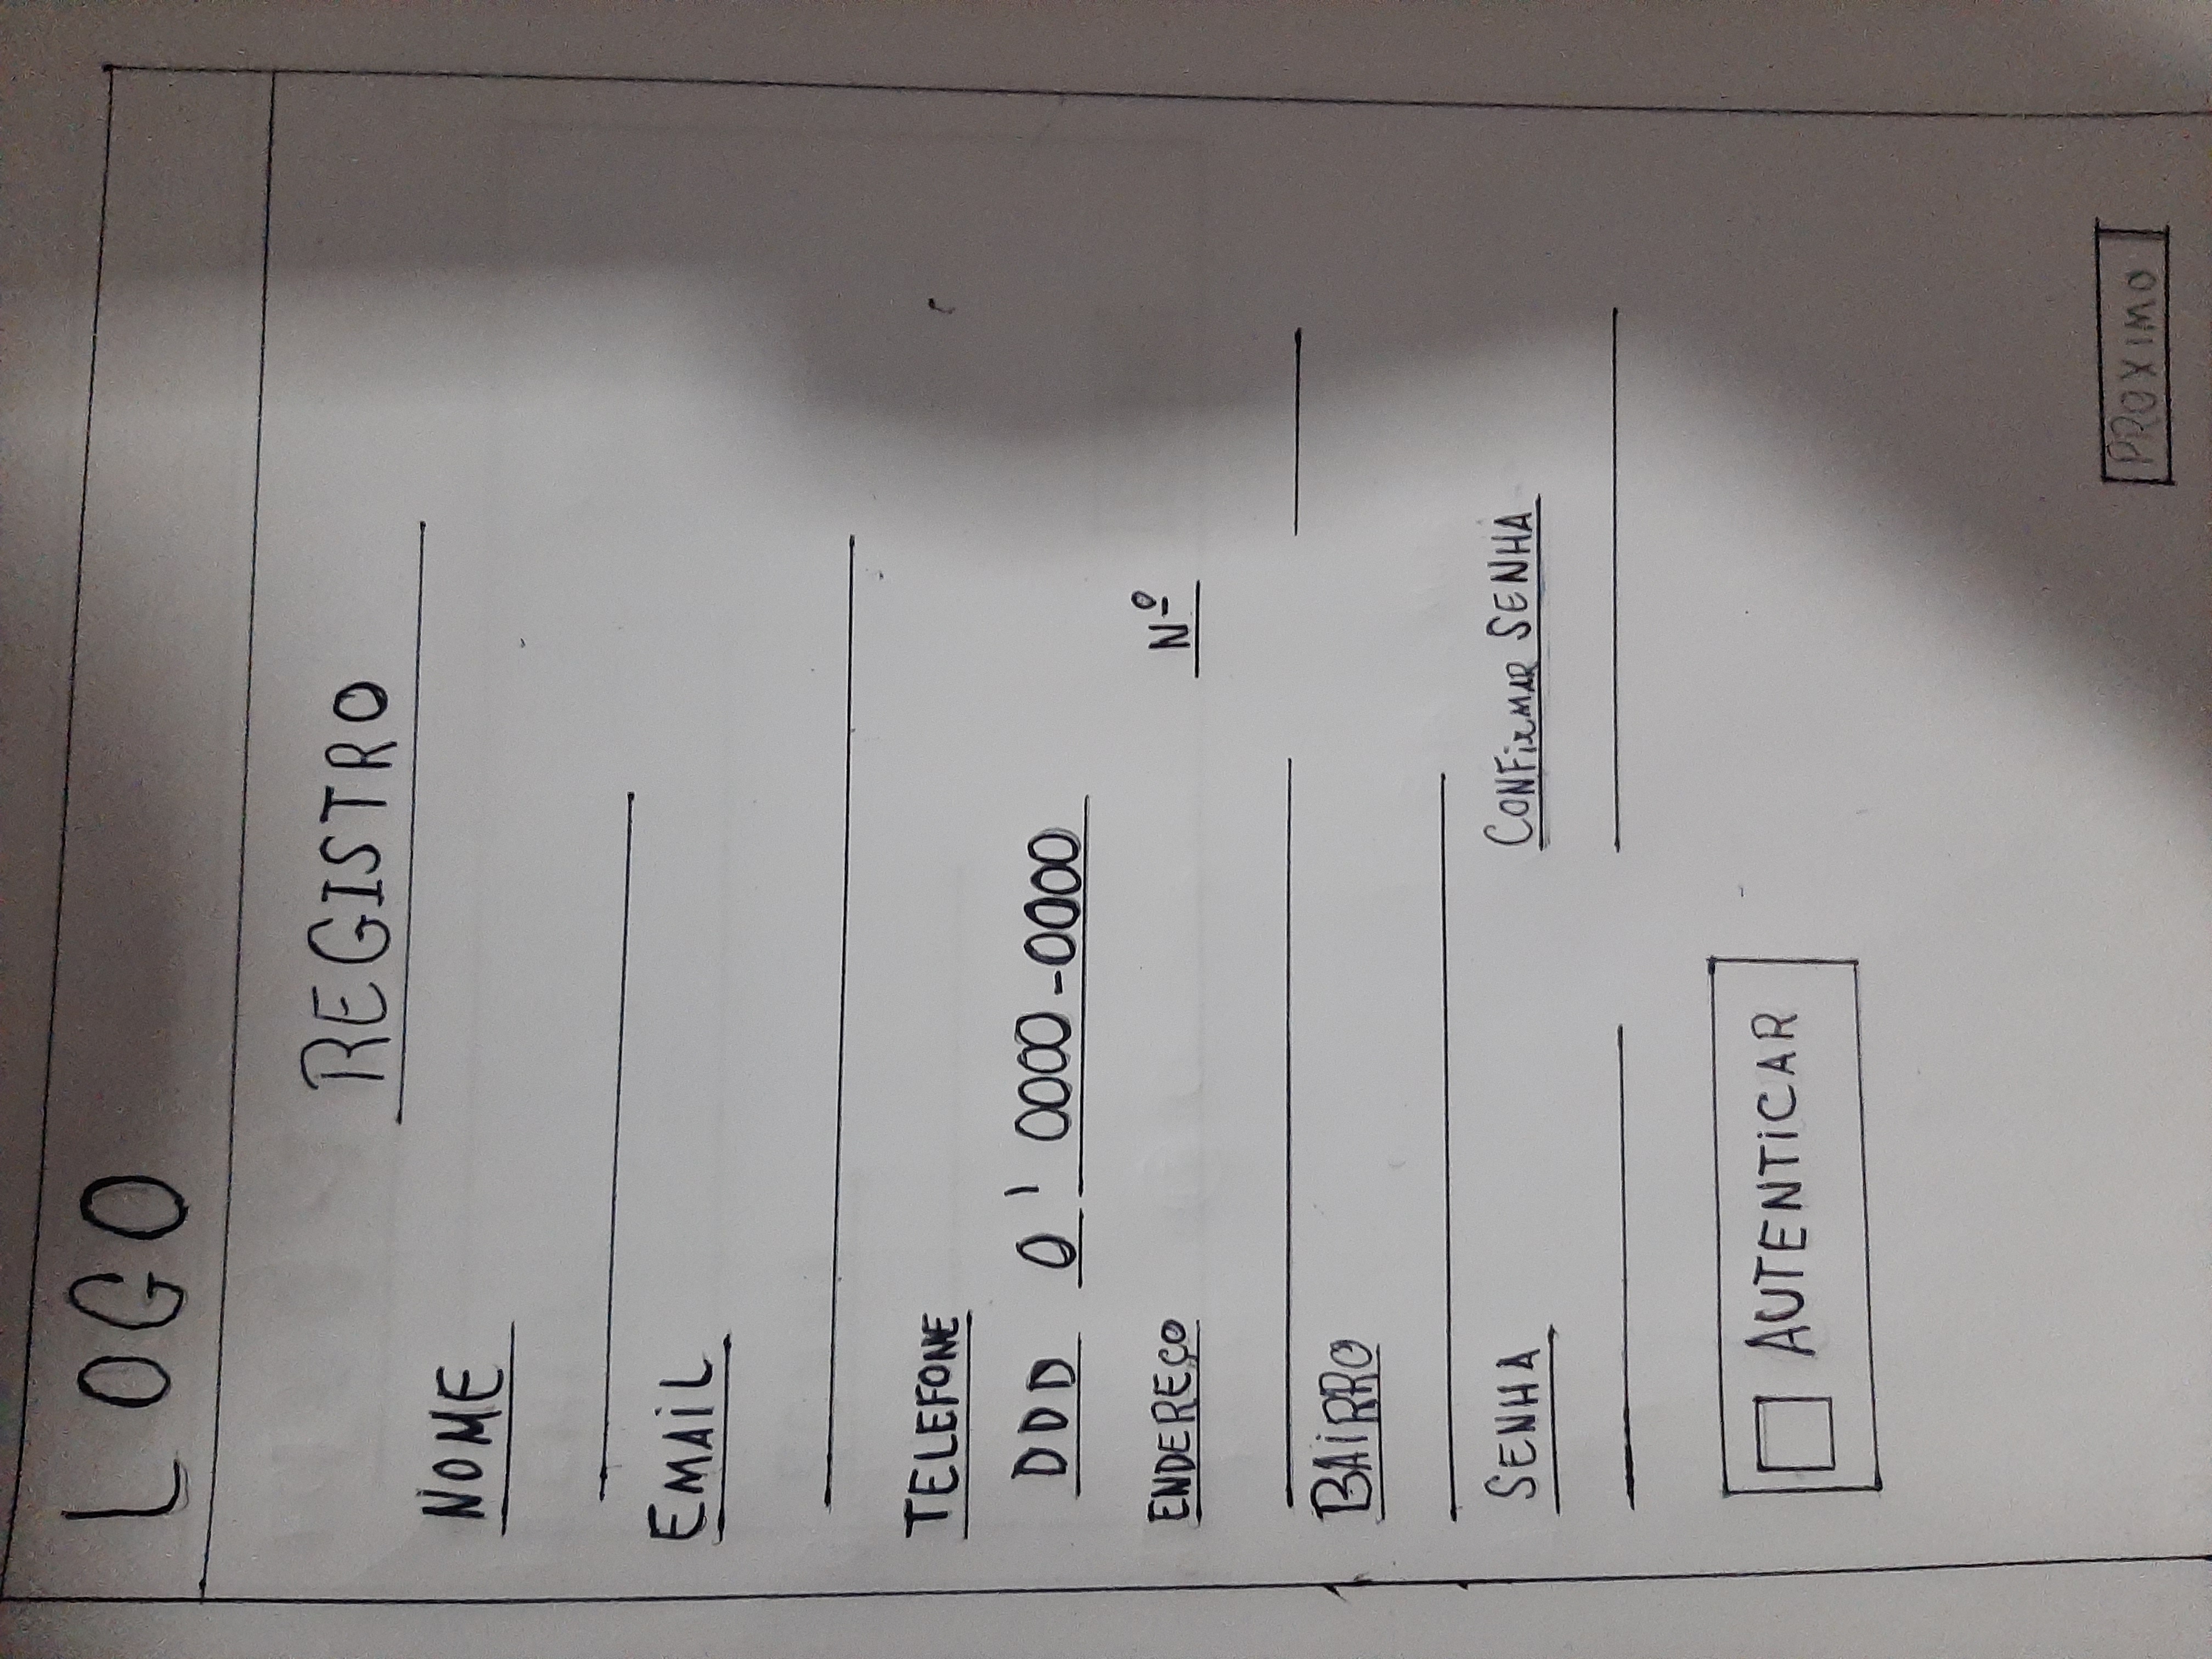 LOGO
REGISTRO
NOME
EMAIL
TELEFONE
DDD 0 ' 0000-0000
ENDEREÇO Nº
BAIRRO
SENHA CONFIRMAR SENHA
AUTENTICAR
PROXIMO